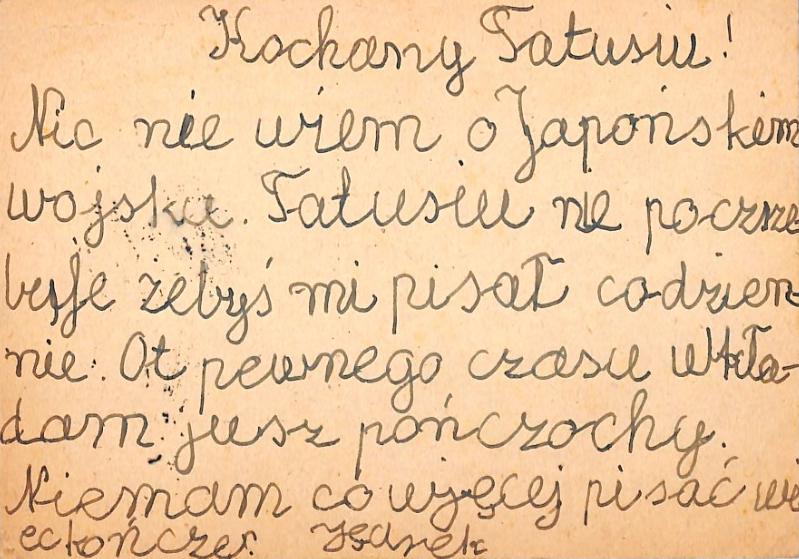 Kochany Tatusiu!
Nic nie wiem o Japońskiem
wojsku. Tatusiu nie poczrze
buje żebyś mi pisał codzien-
nie. Ot pewnego czasu wkła-
dam jusz pończochy.
Niemam co więcej pisać wi
ec kończe.